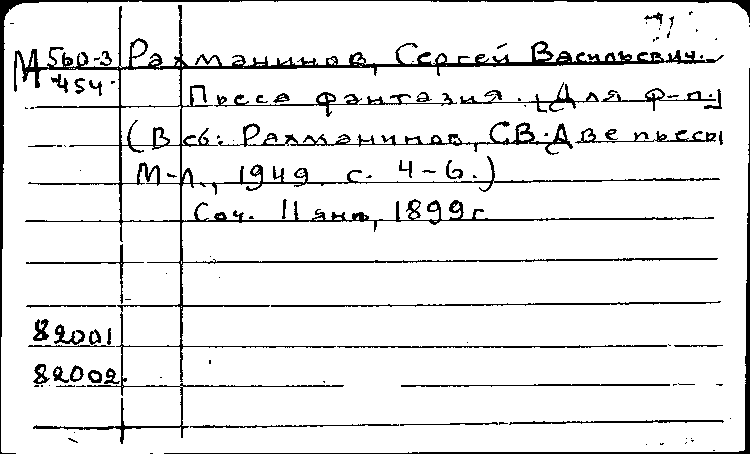 М 560-3 Рахманинов, Сергей Васильевич.
454. Пьеса фантазия. [Для ф-п.]
(В сб: Рахманинов, С.В. Две пьесы
М-Л., 1949. с. 4-6.)
Соч. 11 янв, 1899 г.
82001
82002.